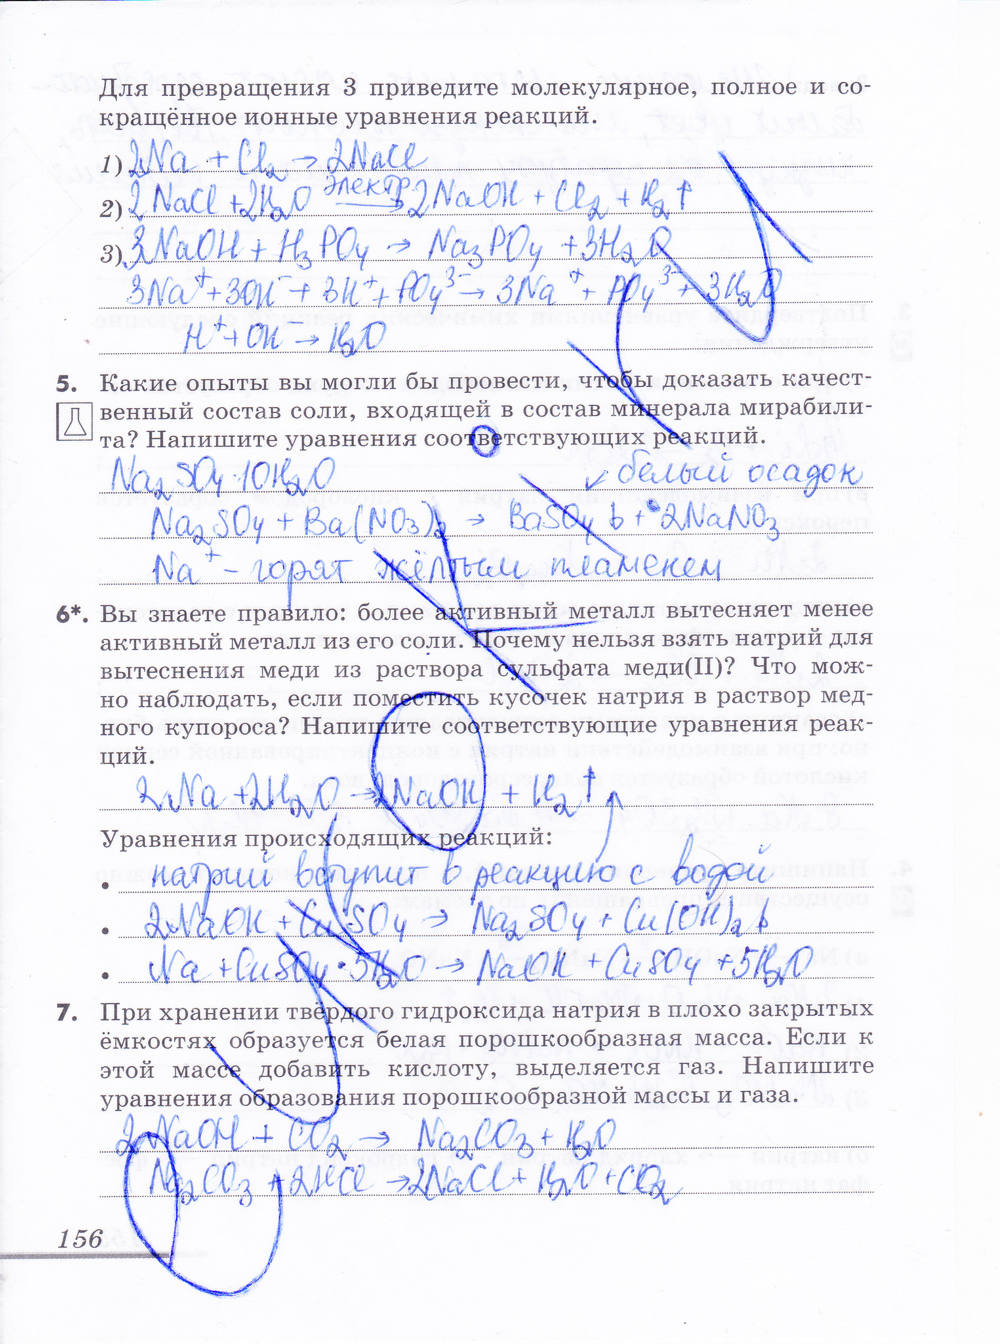 Для превращения 3 приведите молекулярное, полное и со-
кращённое ионные уравнения реакций.
1) 2Na + Cl₂ → 2NaCl
2) 2NaCl + 2H₂O электр. → 2NaOH + Cl₂ + H₂↑
3) 3NaOH + H₃PO₄ → Na₃PO₄ + 3H₂O
3Na⁺ + 3OH⁻ + 3H⁺ + PO₄³⁻ → 3Na⁺ + PO₄³⁻ + 3H₂O
H⁺ + OH⁻ → H₂O
5. Какие опыты вы могли бы провести, чтобы доказать качест-
венный состав соли, входящей в состав минерала мирабили-
та? Напишите уравнения соответствующих реакций.
Na₂SO₄·10H₂O ↙ белый осадок
Na₂SO₄ + Ba(NO₃)₂ → BaSO₄↓ + 2NaNO₃
Na⁺ – горят жёлтым пламенем
6*. Вы знаете правило: более активный металл вытесняет менее
активный металл из его соли. Почему нельзя взять натрий для
вытеснения меди из раствора сульфата меди(II)? Что мож-
но наблюдать, если поместить кусочек натрия в раствор мед-
ного купороса? Напишите соответствующие уравнения реак-
ций.
2Na + 2H₂O → 2NaOH + H₂↑
Уравнения происходящих реакций:
• натрий вступит в реакцию с водой
• 2NaOH + CuSO₄ → Na₂SO₄ + Cu(OH)₂↓
• Na + CuSO₄·5H₂O → NaOH + CuSO₄ + 5H₂O
7. При хранении твёрдого гидроксида натрия в плохо закрытых
ёмкостях образуется белая порошкообразная масса. Если к
этой массе добавить кислоту, выделяется газ. Напишите
уравнения образования порошкообразной массы и газа.
2NaOH + CO₂ → Na₂CO₃ + H₂O
Na₂CO₃ + 2HCl → 2NaCl + H₂O + CO₂
156